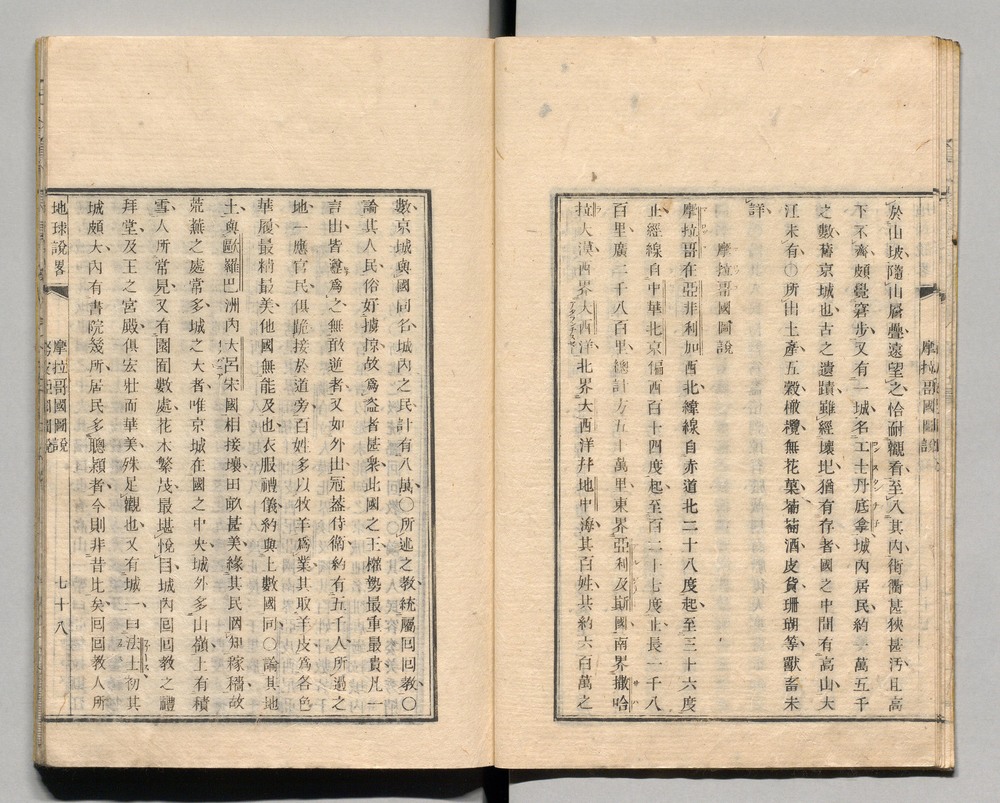 於山坡隨山層疊遠望之恰耐觀看至入其內街衢甚狹甚汚且高
下不齊頗覺窘步又有一城名工士丹底拿城內居民約一萬五千
之數舊京城也古之遺蹟雖經壞圯猶有存者國之中間有高山大
江未有〇所出土產五穀橄欖無花菓葡萄酒皮貨珊瑚等獸畜未
詳
摩拉哥國圖說
摩拉哥在亞非利加西北緯線自赤道北二十八度起至三十六度
止經線自中華北京偏西百十四度起至百二十七度止長一千八
百里廣二千八百里總計方五十萬里東界亞利及斯國南界撒哈
拉大漠西界大西洋北界大西洋幷地中海其百姓共約六百萬之
數京城與國同名城內之民計有八萬〇所述之敎統屬回回敎〇
論其人民俗好擄掠故爲盜者甚衆此國之王權勢最重最貴凡一
言出皆遵爲之無敢逆者又如外出冠蓋侍衛約有五千人所過之
地一應官民俱跪接於道旁百姓多以牧羊爲業其取羊皮爲各色
華履最精最美他國無能及也衣服禮儀約與上數國同〇論其地
土與歐羅巴洲內大呂宋國相接壤田畝甚美緣其民罔知稼穡故
荒蕪之處常多城之大者唯京城在國之中央城外多山嶺上有積
雪人所常見又有園囿數處花木繁茂最堪悅目城內回回敎之禮
拜堂及王之宮殿俱宏壯而華美殊足觀也又有城一曰法士初其
城頗大內有書院幾所居民多聰穎者今則非昔比矣回回敎人所
地球說畧 摩拉哥國圖說 七十八